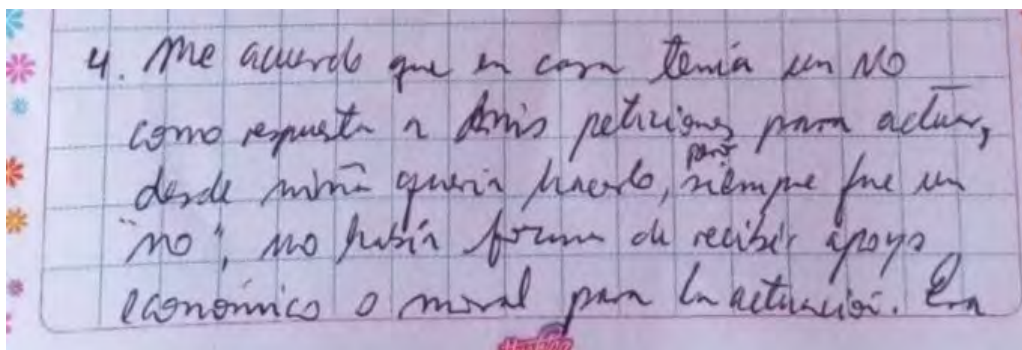 4. Me acuerdo que en casa tenía un NO
como respuesta a mis peticiones para actuar,
desde niña quería hacerlo, pero siempre fue un
"no", no había forma de recibir apoyo
económico o moral para la actuación. Era